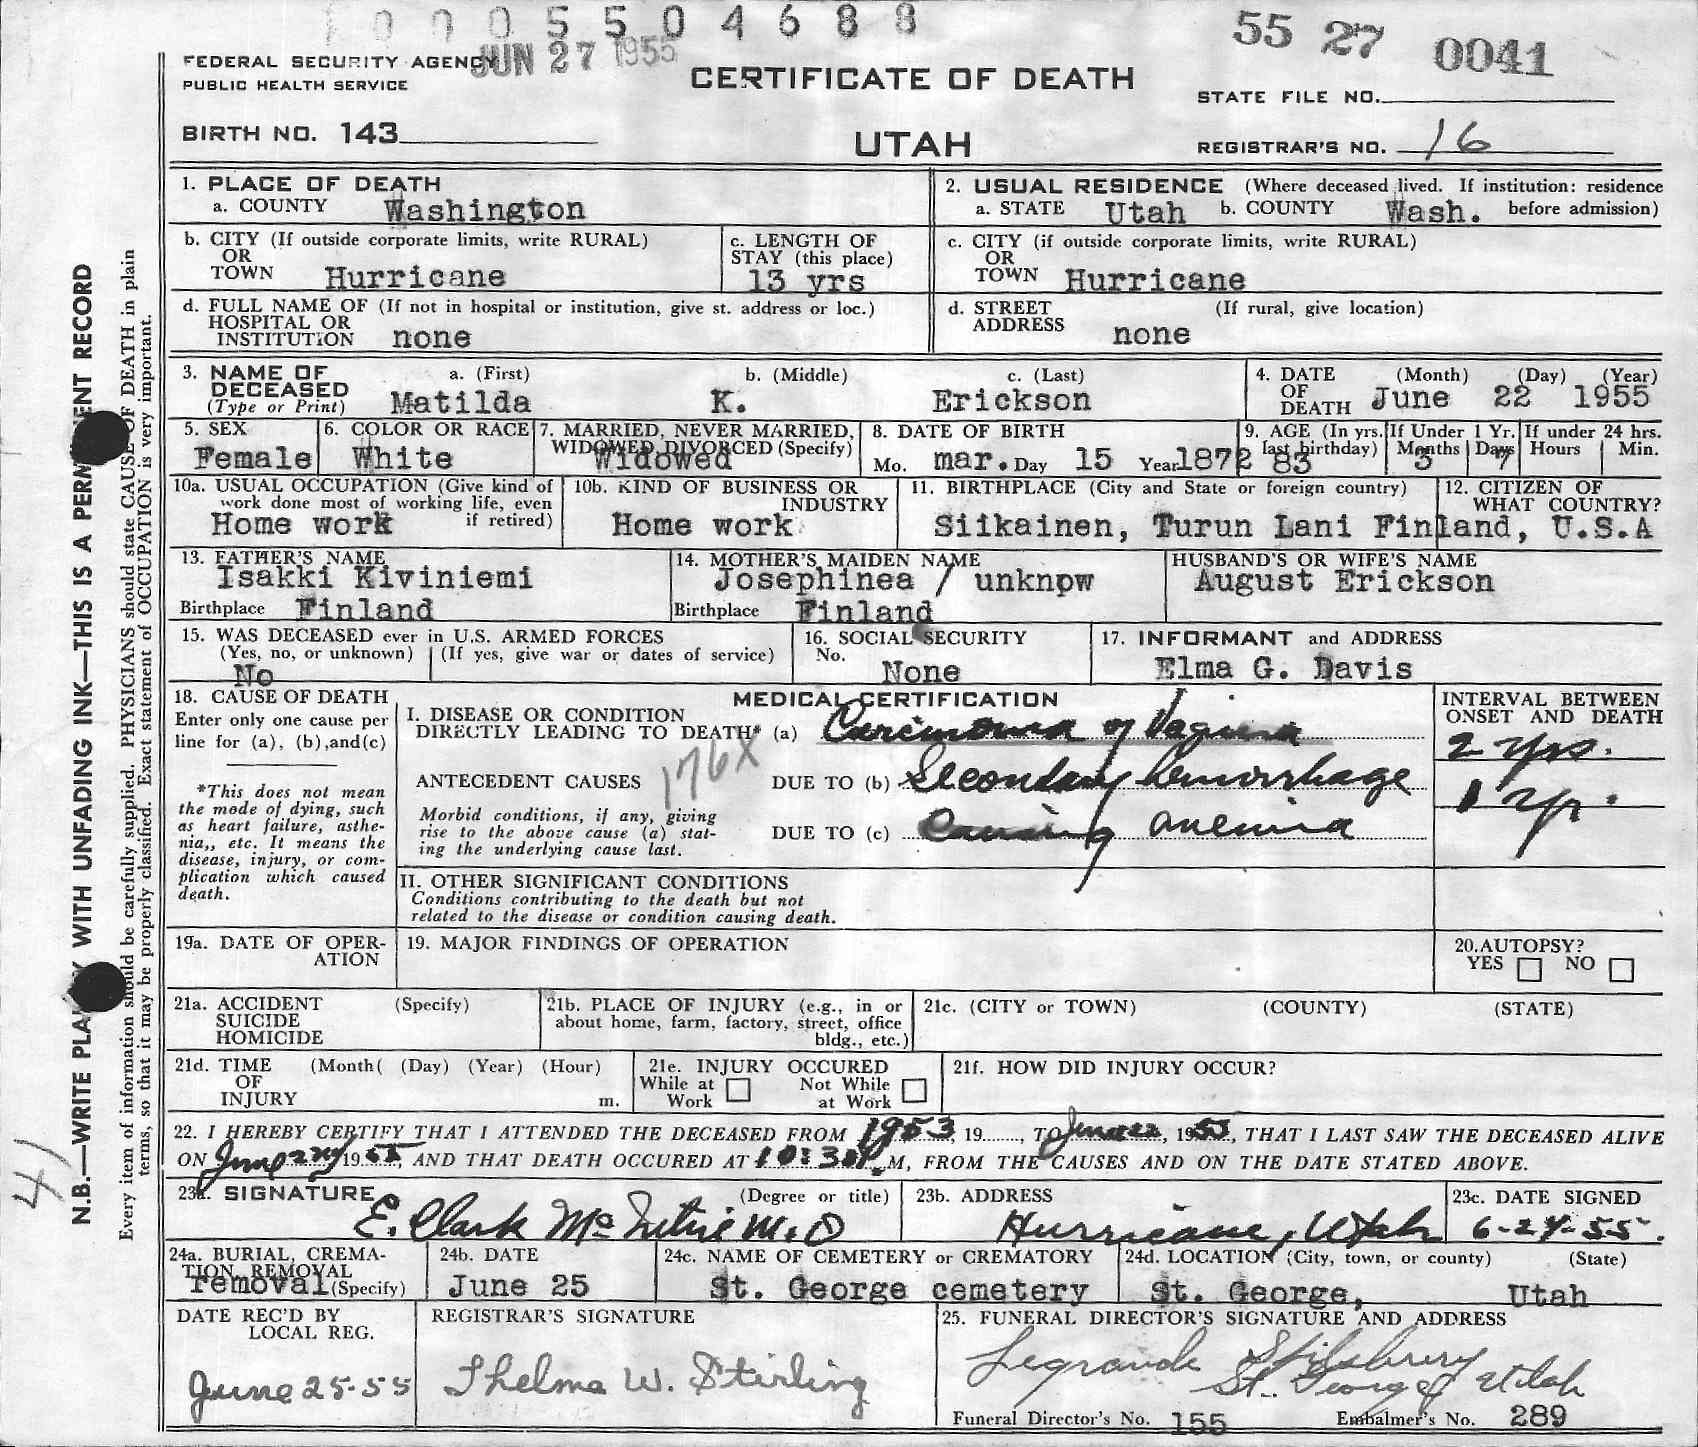 0005504688
JUN 27 1955
55 27 0041
FEDERAL SECURITY AGENCY
PUBLIC HEALTH SERVICE
CERTIFICATE OF DEATH
STATE FILE NO.
BIRTH NO. 143
UTAH
REGISTRAR'S NO. 16
1. PLACE OF DEATH
a. COUNTY Washington
2. USUAL RESIDENCE (Where deceased lived. If institution: residence
a. STATE Utah b. COUNTY Wash. before admission)
b. CITY (If outside corporate limits, write RURAL)
OR
TOWN Hurricane
c. LENGTH OF
STAY (this place)
13 yrs
c. CITY (if outside corporate limits, write RURAL)
OR
TOWN Hurricane
d. FULL NAME OF (If not in hospital or institution, give st. address or loc.)
HOSPITAL OR
INSTITUTION none
d. STREET (If rural, give location)
ADDRESS none
3. NAME OF a. (First) b. (Middle) c. (Last)
DECEASED
(Type or Print) Matilda K. Erickson
4. DATE (Month) (Day) (Year)
OF
DEATH June 22 1955
5. SEX
Female
6. COLOR OR RACE
White
7. MARRIED, NEVER MARRIED,
WIDOWED, DIVORCED (Specify)
Widowed
8. DATE OF BIRTH
Mo. mar. Day 15 Year 1872
9. AGE (In yrs.
last birthday)
83
If Under 1 Yr.
Months Days
3 7
If under 24 hrs.
Hours Min.
10a. USUAL OCCUPATION (Give kind of
work done most of working life, even
if retired)
Home work
10b. KIND OF BUSINESS OR
INDUSTRY
Home work
11. BIRTHPLACE (City and State or foreign country)
Siikainen, Turun Lani Finland,
12. CITIZEN OF
WHAT COUNTRY?
U.S.A
13. FATHER'S NAME
Isakki Kiviniemi
Birthplace Finland
14. MOTHER'S MAIDEN NAME
Josephinea / unknpw
Birthplace Finland
HUSBAND'S OR WIFE'S NAME
August Erickson
15. WAS DECEASED ever in U.S. ARMED FORCES
(Yes, no, or unknown) (If yes, give war or dates of service)
No
16. SOCIAL SECURITY
No.
None
17. INFORMANT and ADDRESS
Elma G. Davis
18. CAUSE OF DEATH
Enter only one cause per
line for (a), (b),and(c)
*This does not mean
the mode of dying, such
as heart failure, asthe-
nia,, etc. It means the
disease, injury, or com-
plication which caused
death.
MEDICAL CERTIFICATION
I. DISEASE OR CONDITION
DIRECTLY LEADING TO DEATH* (a) Carcinoma of Vagina
176X
ANTECEDENT CAUSES DUE TO (b) Secondary hemorrhage
Morbid conditions, if any, giving
rise to the above cause (a) stat-
ing the underlying cause last.
DUE TO (c) Causing anemia
INTERVAL BETWEEN
ONSET AND DEATH
2 yrs.
1 yr.
II. OTHER SIGNIFICANT CONDITIONS
Conditions contributing to the death but not
related to the disease or condition causing death.
19a. DATE OF OPER-
ATION
19. MAJOR FINDINGS OF OPERATION
20.AUTOPSY?
YES NO
21a. ACCIDENT (Specify)
SUICIDE
HOMICIDE
21b. PLACE OF INJURY (e.g., in or
about home, farm, factory, street, office
bldg., etc.)
21c. (CITY or TOWN) (COUNTY) (STATE)
21d. TIME (Month( (Day) (Year) (Hour)
OF
INJURY m.
21e. INJURY OCCURED
While at Not While
Work at Work
21f. HOW DID INJURY OCCUR?
22. I HEREBY CERTIFY THAT I ATTENDED THE DECEASED FROM 1953, 19......, TO June 22, 1955, THAT I LAST SAW THE DECEASED ALIVE
ON June 22nd 1955, AND THAT DEATH OCCURED AT 10:30P.M, FROM THE CAUSES AND ON THE DATE STATED ABOVE.
23a. SIGNATURE (Degree or title)
E. Clark McIntire M.D
23b. ADDRESS
Hurricane, Utah
23c. DATE SIGNED
6-24-55.
24a. BURIAL, CREMA-
TION, REMOVAL
removal (Specify)
24b. DATE
June 25
24c. NAME OF CEMETERY or CREMATORY
St. George cemetery
24d. LOCATION (City, town, or county) (State)
St. George, Utah
DATE REC'D BY
LOCAL REG.
June 25-55
REGISTRAR'S SIGNATURE
Thelma W. Stirling
25. FUNERAL DIRECTOR'S SIGNATURE AND ADDRESS
Legrande Spilsbury
St. George Utah
Funeral Director's No. 155 Embalmer's No. 289
N.B.—WRITE PLA WITH UNFADING INK—THIS IS A PERM ENT RECORD
Every item of information should be carefully supplied. PHYSICIANS should state CAUSE OF DEATH in plain
terms, so that it may be properly classified. Exact statement of OCCUPATION is very important.
41